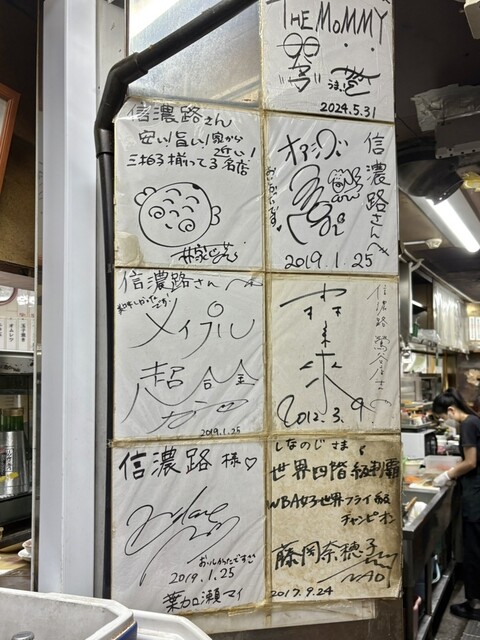 THE MOMMY
うま!
2024.5.31
信濃路さん
安い!旨い!家から
近い!
三拍子揃ってる名店
オアシズ
信濃路さんへ
2019.1.25
信濃路さんへ
メイプル
超合金
2019.1.25
信濃路
2012.3.9
信濃路様♡
おいしかったですっ
2019.1.25
葉加瀬マイ
しなのじさま
世界四階級制覇
WBA女子世界フライ級
チャンピオン
藤岡奈穂子
NAO
2017.9.24